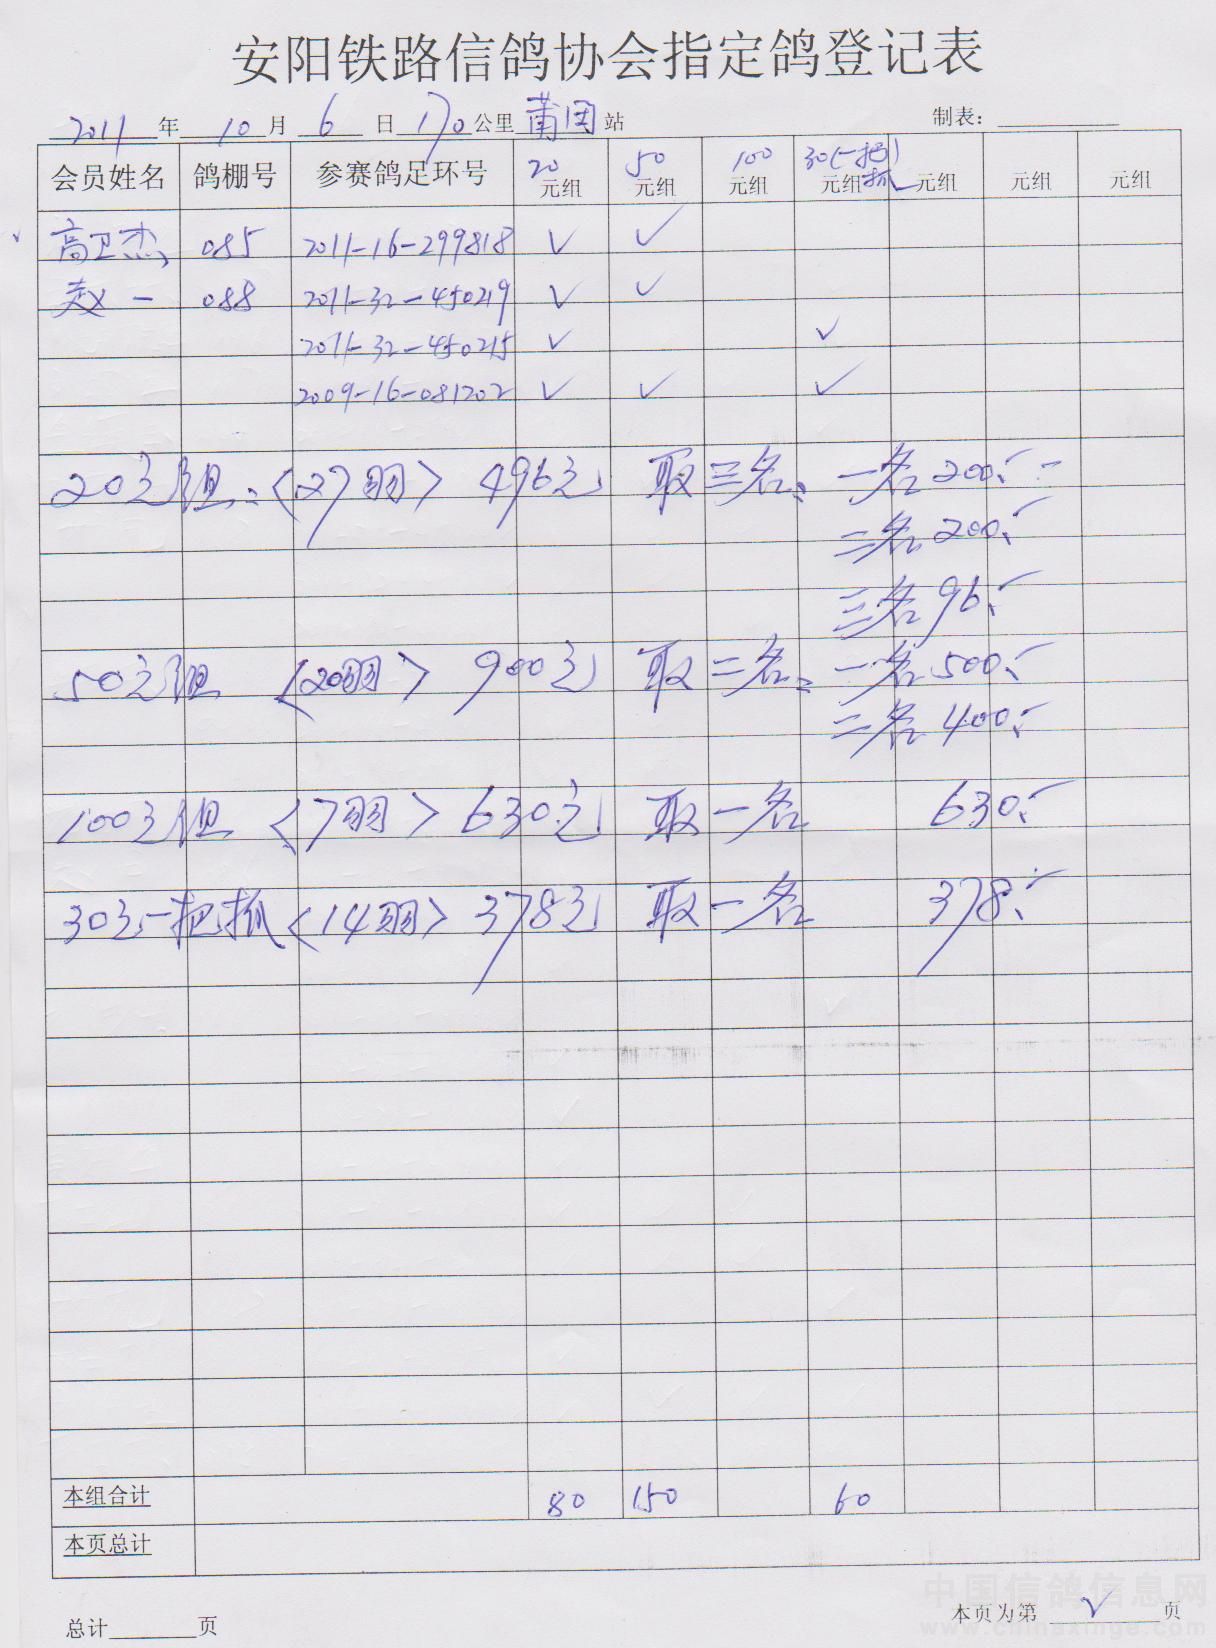 安阳铁路信鸽协会指定鸽登记表
2011年 10月 6日 170公里 莆田站 制表：
会员姓名 鸽棚号 参赛鸽足环号 20元组 50元组 100元组 30(一把抓)元组 元组 元组 元组
高卫杰 085 2011-16-299818 √ √
赵一 088 2011-32-450219 √ √
2011-32-450215 √ √
2009-16-081202 √ √ √
20元组：<27羽> 496元 取三名： 一名 200.-
二名 200.-
三名 96.-
50元组 <20羽> 900元 取二名： 一名 500.-
二名 400.-
100元组 <7羽> 630元 取一名 630.-
30元一把抓 <14羽> 378元 取一名 378.-
本组合计 80 150 60
本页总计
总计 页 本页为第 √ 页
中国信鸽信息网
www.chinaxinge.com